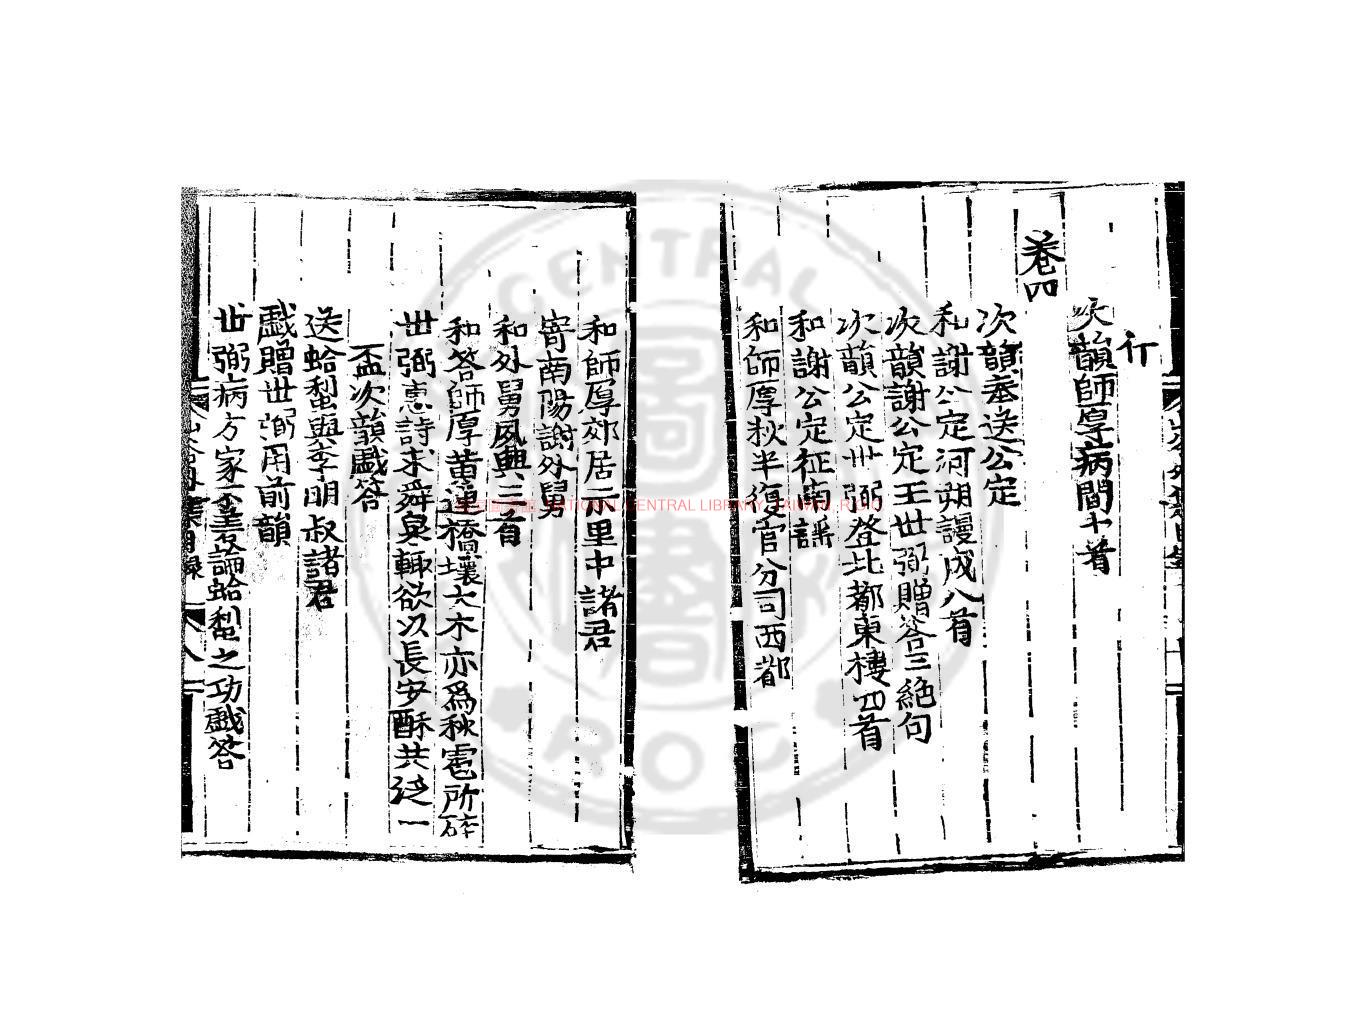 行
次韻師厚病間十首
卷四
次韻奉送公定
和謝公定河朔謾成八首
次韻謝公定王世弼贈答三絕句
次韻公定世弼登北都東樓四首
和謝公定征南謠
和師厚秋半復官分司西都
和師厚郊居示里中諸君
寄南陽謝外舅
和外舅夙興三首
和答師厚黃連橋壞大木亦爲秋雹所碎
世弼惠詩求舜泉輒欲以長安酥共泛一
盃次韻戲答
送蛤蜊與李明叔諸君
戲贈世弼用前韻
世弼病方家不善論蛤蜊之功戲答
NATIONAL CENTRAL LIBRARY, TAIWAN, R.O.C
CENTRAL
ROC